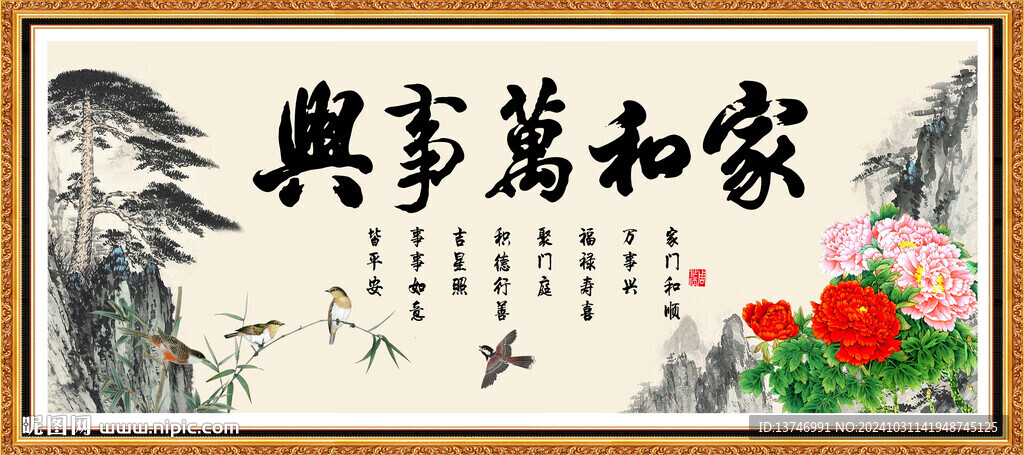 家和萬事興
家门和顺
万事兴
福禄寿喜
聚门庭
积德行善
吉星照
事事如意
皆平安
昵图网 www.nipic.com
ID:13746991 NO:20241031141948745125